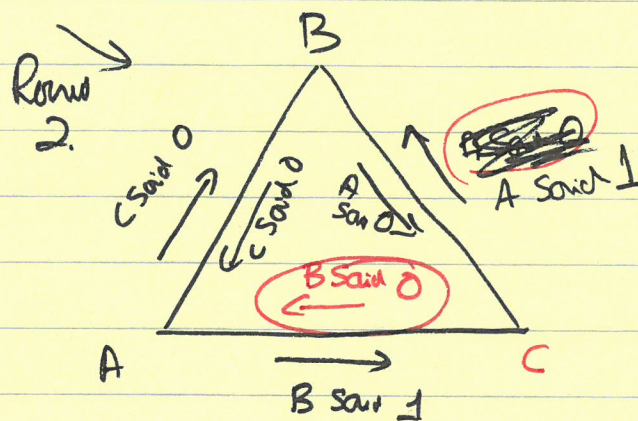 B
Round
2.
C Said 0
C Said 0
A
Said 1
A Said 1
B Said 0
A
C
B Said 1